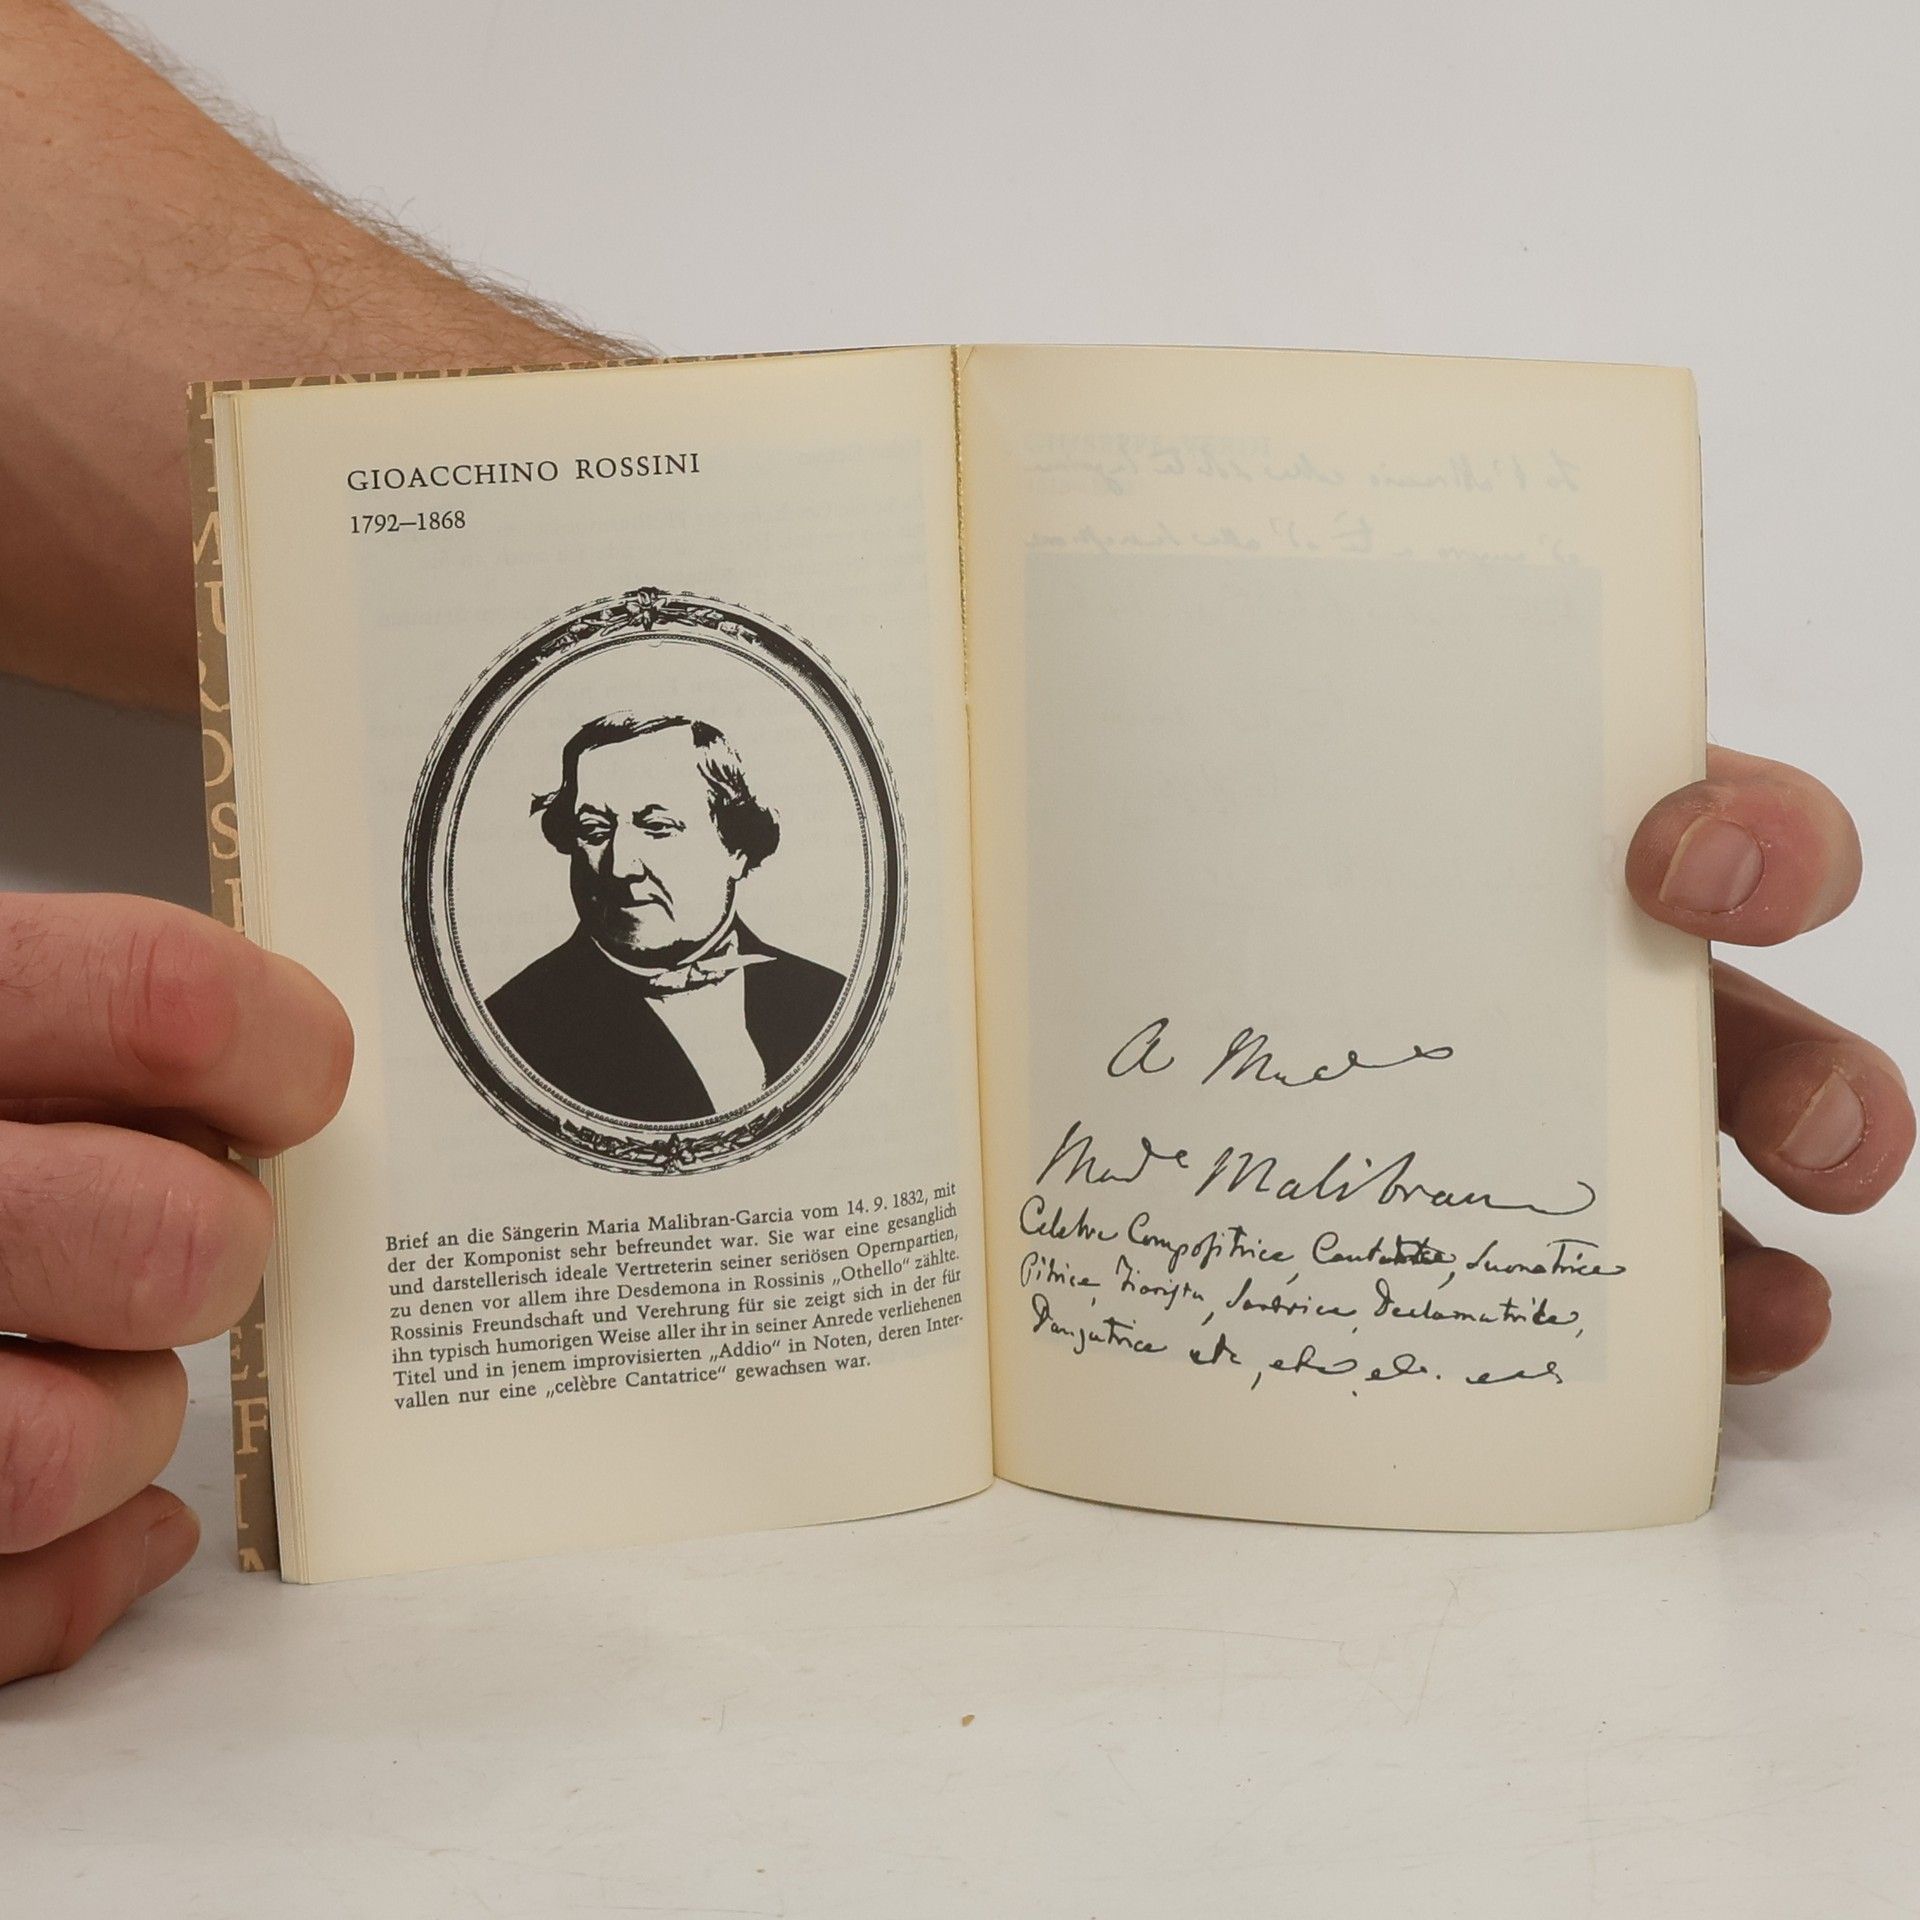 GIOACCHINO ROSSINI
1792–1868
Brief an die Sängerin Maria Malibran-Garcia vom 14. 9. 1832, mit
der der Komponist sehr befreundet war. Sie war eine gesanglich
und darstellerisch ideale Vertreterin seiner seriösen Opernpartien,
zu denen vor allem ihre Desdemona in Rossinis „Othello“ zählte.
Rossinis Freundschaft und Verehrung für sie zeigt sich in der für
ihn typisch humorigen Weise aller ihr in seiner Anrede verliehenen
Titel und in jenem improvisierten „Addio“ in Noten, deren Inter-
vallen nur eine „celèbre Cantatrice“ gewachsen war.
A
Made Malibran
Celebre Compositrice, Cantatrice, Suonatrice
Pitrice, Declamatrice,
Danzatrice etc, etc, etc.